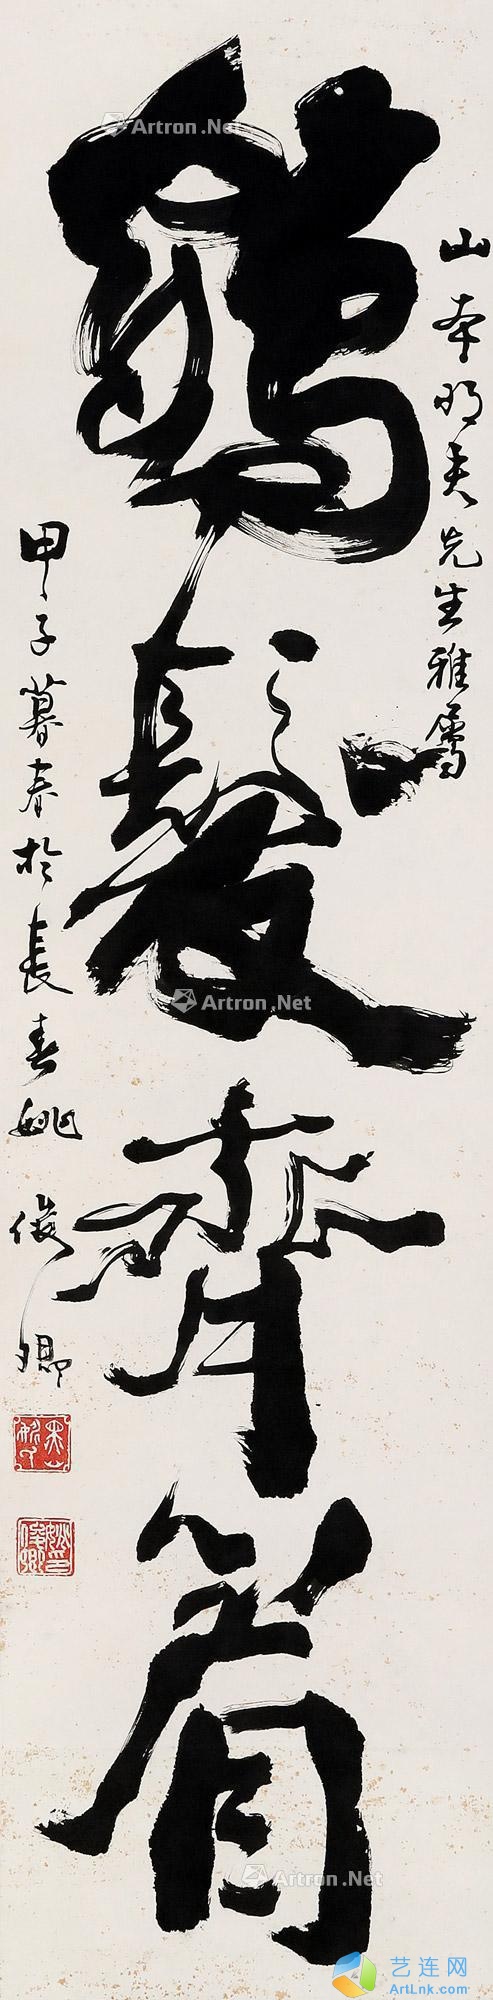 山本明夫先生雅屬
鶴髮齊眉
甲子暮春於長春姚俊卿
姚印俊卿
Artron.Net
Artron.Net
Artron.Net
艺连网
ArtLnk.com